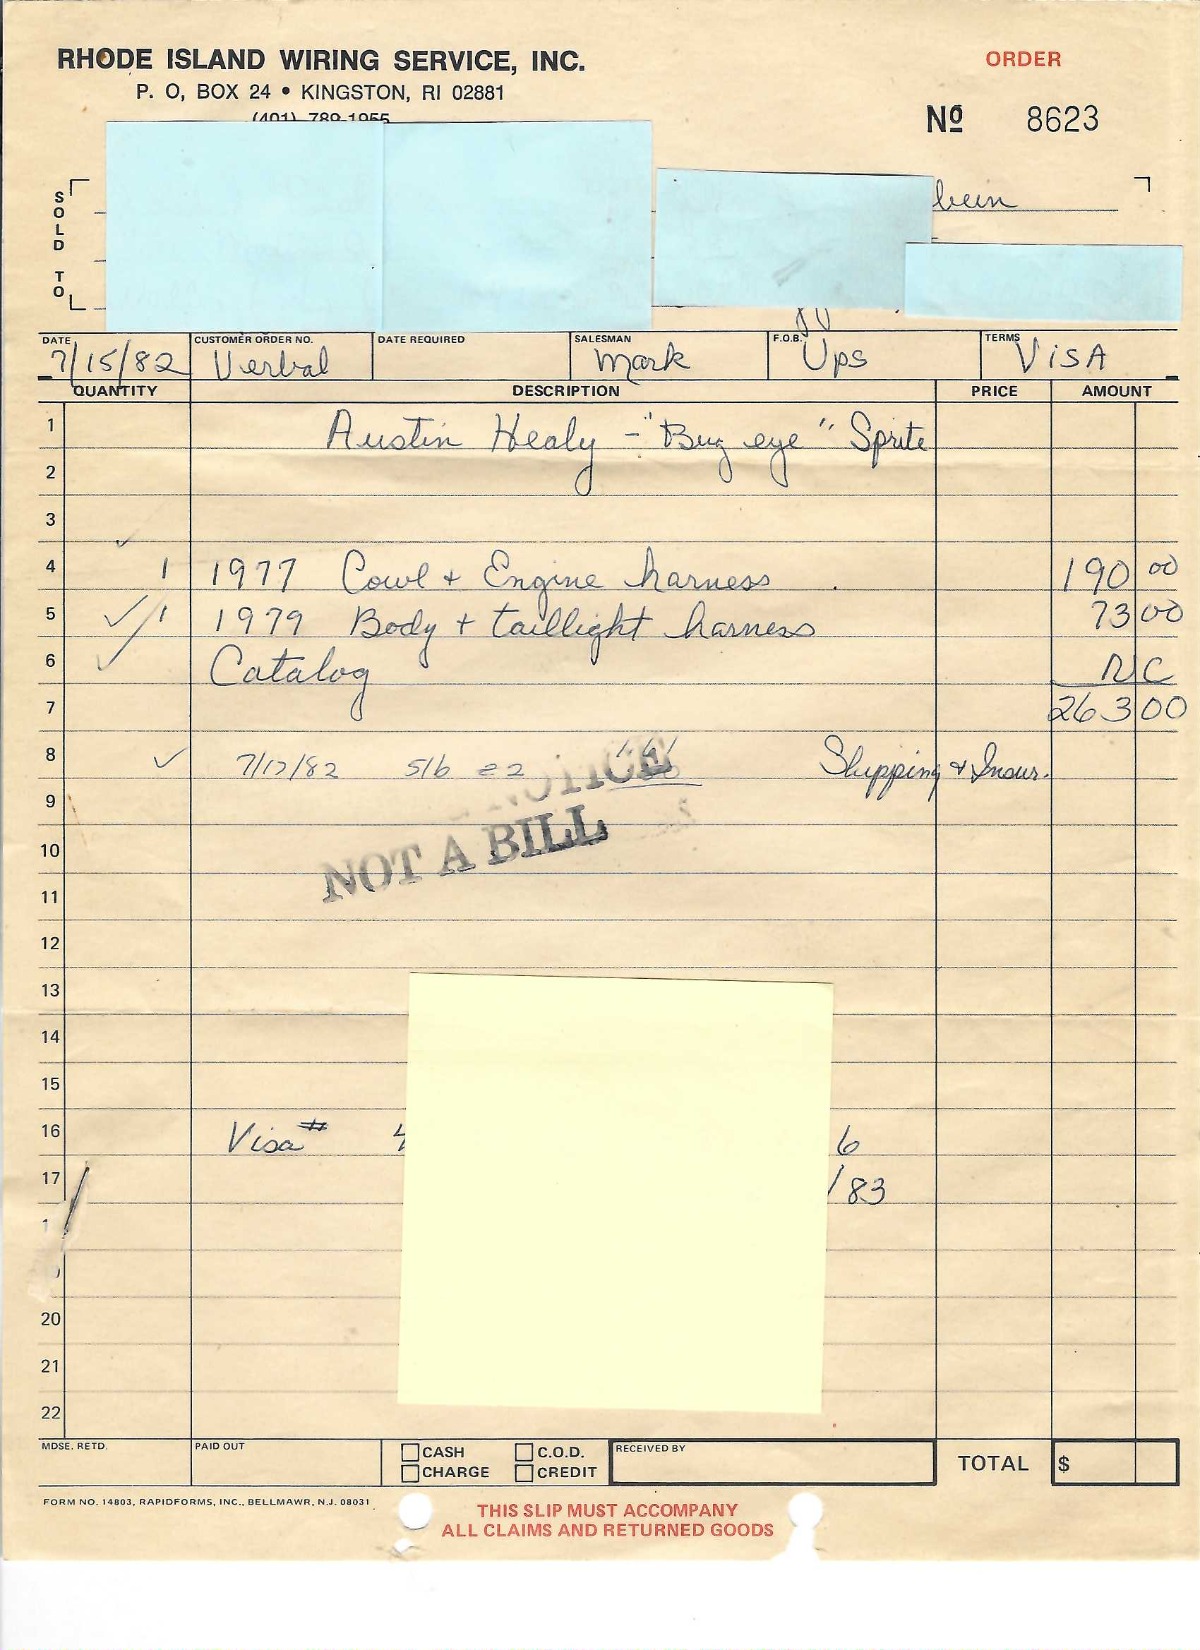 RHODE ISLAND WIRING SERVICE, INC.
P. O, BOX 24 • KINGSTON, RI 02881
(401) 789-1955
ORDER
Nº 8623
SOLD TO
bein
DATE 7/15/82
CUSTOMER ORDER NO. Verbal
DATE REQUIRED
SALESMAN Mark
F.O.B. Ups
TERMS ViSA
QUANTITY DESCRIPTION PRICE AMOUNT
1 Austin Healy - "Bug eye" Sprite
2
3
4 1 1977 Cowl + Engine harness 190 00
5 1 1979 Body + taillight harness 73 00
6 Catalog N/C
7 263 00
8 7/17/82 5lb Shipping + Insur.
NOTICE
9
NOT A BILL
10
11
12
13
14
15
16 Visa # 4 6
17 /83
1
20
21
22
MDSE. RETD. PAID OUT CASH C.O.D. RECEIVED BY TOTAL $
CHARGE CREDIT
FORM NO. 14803, RAPIDFORMS, INC., BELLMAWR, N.J. 08031
THIS SLIP MUST ACCOMPANY
ALL CLAIMS AND RETURNED GOODS